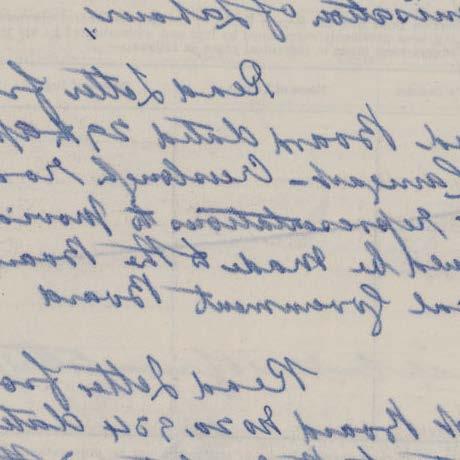 nisation of Labour
Read Letter fr
Board dated 29 Sep
Creslough Roa
representations to provis
be made to the Boar
Government Board
Read Letter fro
Board No 20,934 date